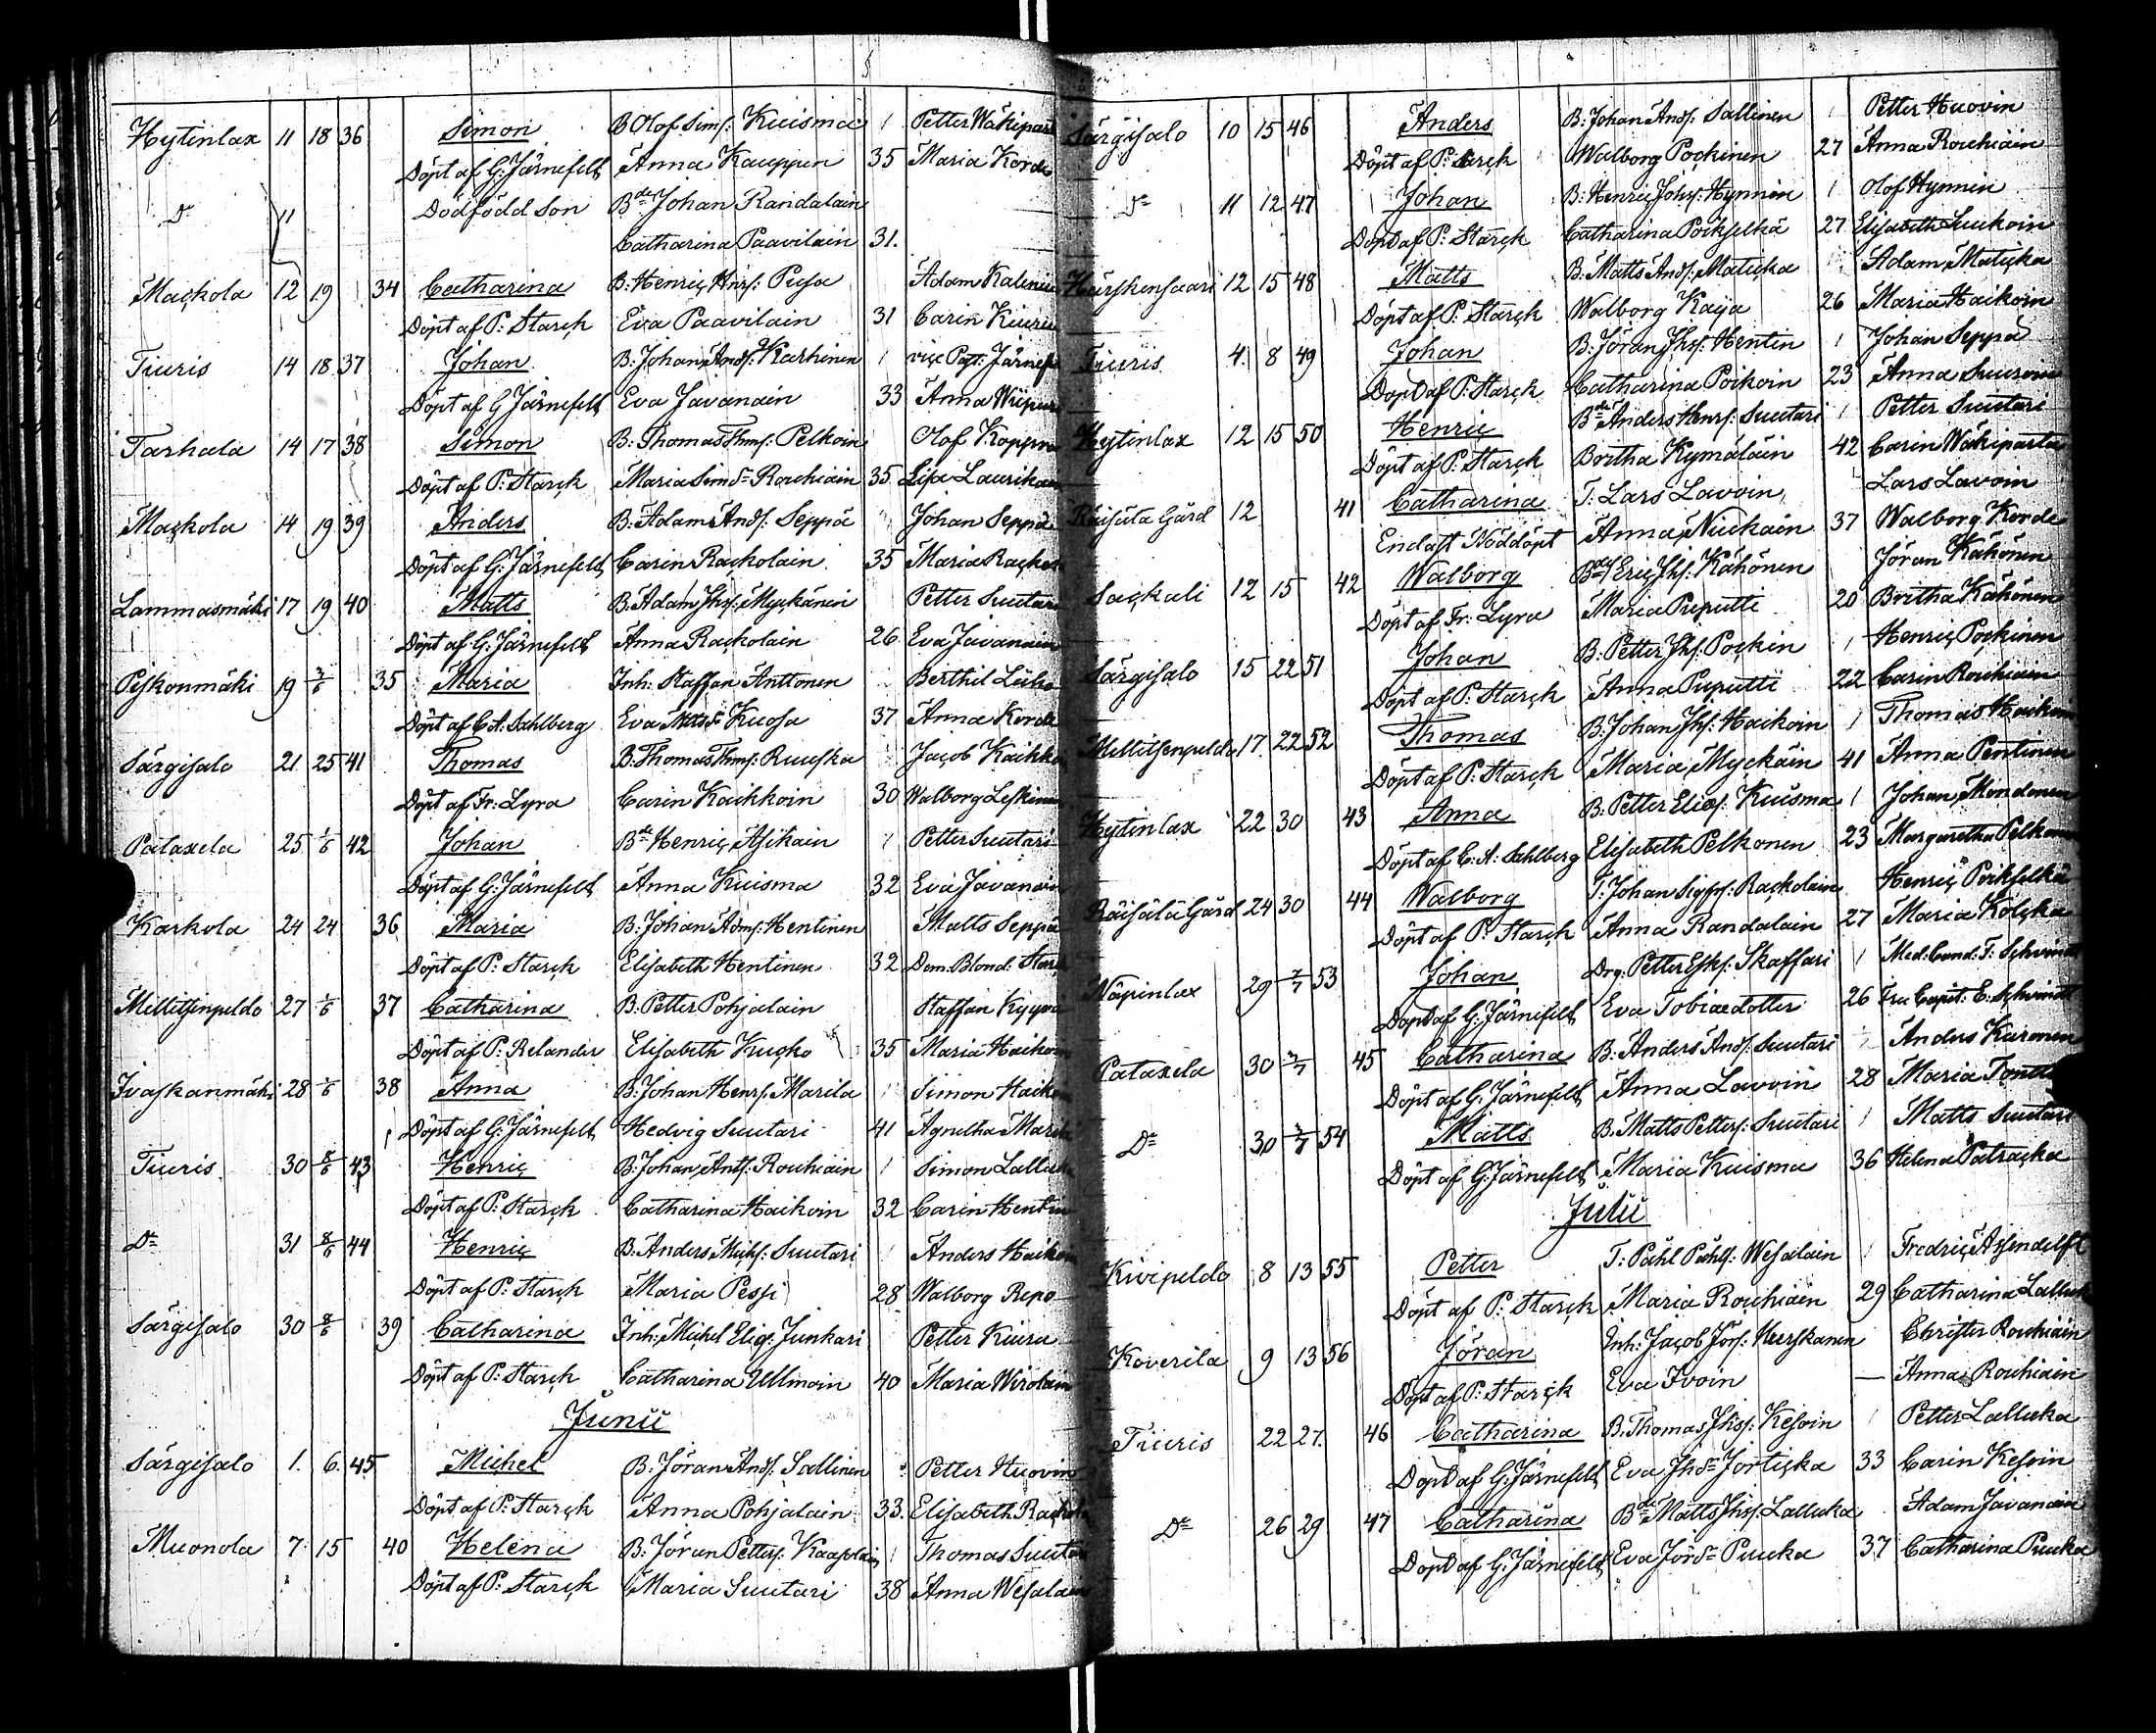 Hytinlax 11 18 36 Simon B Olof Sims: Kuisma 1 Petter Wäkipart
Döpt af G: Järnefelt Anna Kauppin 35 Maria Korde
D:o 11 Dödfödd son B:de Johan Randalain
Catharina Paavilain 31.
Mackola 12 19 34 Catharina B: Henric Hnrs: Pusa Adam Kalinin
Döpt af P: Starck Eva Paavilain 31 Carin Kiuru
Tiuris 14 18 37 Johan B: Johan Ands: Karhinen 1 vice Past: Järnef
Döpt af G Järnefelt Eva Javanain 33 Anna Wiipur
Tarhala 14 17 38 Simon B: Thomas Thms: Pelkoin Olof Koppin
Döpt af P: Starck Maria Simd:r Rouhiain 35 Lisa Laurikain
Mackola 14 19 39 Anders B: Adam Ands: Seppä Johan Seppä
Döpt af G: Järnefelt Carin Rackolain 35 Maria Racko
Lammasmäki 17 19 40 Matts B: Adam Jhs: Myckänen Petter Suutari
Döpt af G: Järnefelt Anna Rackolain 26 Eva Javanain
Peskonmäki 19 2/6 35 Maria Inh: Staffan Anttonen Berthil Liiko
Döpt af C A: Sahlberg Eva Mattsd:r Kuosa 37 Anna Korde
Särgisalo 21 25 41 Thomas B: Thomas Thms: Ruuska Jacob Kaikko
Döpt af Fr: Lyra Carin Kaikkoin 30 Walborg Leskinen
Pataxela 25 1/6 42 Johan B:de Henric Asikain 1 Petter Suutari
Döpt af G: Järnefelt Anna Kuisma 32 Eva Javanain
Karkola 24 24 36 Maria B: Johan Adms: Hentinen Matts Seppä
Döpt af P: Starck Elisabeth Hentinen 32 Dem. Blond: Starck
Mellitsenpeldo 27 1/6 37 Catharina B: Petter Pohjalain Staffan Kyyrö
Döpt af P: Relander Elisabeth Kucko 35 Maria Haikon
Ivaskanmäki 28 1/6 38 Anna B: Johan Henrs: Marila 1 Simon Haikon
Döpt af G: Järnefelt Hedvig Suutari 41 Agnetha Marila
Tiuris 30 8/6 43 Henric B: Johan Ants: Rouhiain 1 Simon Lalluka
Döpt af P: Starck Catharina Haikoin 32 Carin Hentin
D:o 31 8/6 44 Henric B: Anders Michs: Suutari Anders Haikon
Döpt af P: Starck Maria Pessi 28 Walborg Repo
Särgisalo 30 8/6 39 Catharina Inh: Michel Eligs: Junkari Petter Kiuru
Döpt af P: Starck Catharina Ullmoin 40 Maria Wirolain
Junii
Särgisalo 1. 6. 45 Michel B: Jöran Ands: Sallinen Petter Huovin
Döpt af P: Starck Anna Pohjalain 33. Elisabeth Racko
Muonola 7 15 40 Helena B: Jöran Petters: Kaasolain 1 Thomas Suutari
Döpt af P: Starck Maria Suutari 38 Anna Wesalain
Särgisalo 10 15 46 Anders B: Johan Ands: Sallinen 1 Petter Huovin
Döpt af P: Starck Walborg Pockinen 27 Anna Rouhiäin
D:o 11 12 47 Johan B: Henric Johs: Hynnin 1 Olof Hynnin
Döpt af P: Starck Catharina Poikselkä 27 Elisabeth Suikoin
Härskensaari 12 15 48 Matts B: Matts Ands: Matucka Adam Matucka
Döpt af P: Starck Walborg Kaija 26 Maria Haikoin
Tiuris 4 8 49 Johan B: Jöran Jhs: Hentin 1 Johan Seppä
Döpt af P: Starck Catharina Poikoin 23 Anna Suuroin
Hytinlax 12 15 50 Henric B:de Anders Hnrs: Suutari 1 Petter Suutari
Döpt af P: Starck Britha Kymäläin 42 Carin Wäkiparta
Räisälä Gård 12 41 Catharina T: Lars Lavoin Lars Lavoin
Endast Nöddöpt Anna Nuckain 37 Walborg Korde
Sackali 12 15 42 Walborg B:de Eric Jhs: Kähönen Jöran Kähönen
Döpt af Fr: Lyra Maria Puputti 20 Britha Kähönen
Särgisalo 15 22 51 Johan B: Petter Jhs: Pockin 1 Henric Pockinen
Döpt af P: Starck Anna Puputti 22 Carin Rouhiain
Mellitsenpeldo 17 22 52 Thomas B: Johan Jhs: Haikoin 1 Thomas Haikon
Döpt af P: Starck Maria Myckäin 41 Anna Pentinen
Hytinlax 22 30 43 Anna B: Petter Elias: Kuisma 1 Johan Mondonen
Döpt af C: A: Sahlberg Elisabeth Pelkonen 23 Margaretha Pelkonen
Räisälä Gård 24 30 44 Walborg T: Johan Sigfrs: Rackolain Henric Poikselkä
Döpt af P: Starck Anna Randalain 27 Maria Kolcka
Näpinlax 29 2/7 53 Johan Drg: Petter Esks: Skaffari 1 Med: Cand: F: Schvindt
Döpt af G: Järnefelt Eva Tobiædotter 26 Fru Capit: E: Schvindt
Pataxela 30 2/7 45 Catharina B: Anders Ands: Suutari Anders Kuronen
Döpt af G: Järnefelt Anna Lavoin 28 Maria Tontt
D:o 30 2/7 54 Matts B: Matts Petters: Suutari 1 Matts Suutari
Döpt af G: Järnefelt Maria Kuisma 36 Helena Patracka
Julii
Kivipeldo 8 13 55 Petter T: Påhl Påhls: Wesalain 1 Fredric Assendelft
Döpt af P: Starck Maria Rouhiäin 29 Catharina Lalluka
Koverila 9 13 56 Jöran Inh: Jacob Jörs: Huuskanen Christer Rouhiäin
Döpt af P: Starck Eva Ivoin — Anna Rouhiäin
Tiuris 22 27. 46 Catharina B: Thomas Jhs: Kesoin 1 Petter Lalluka
Döpt af G: Järnefelt Eva Jhsd:r Jorticka 33 Carin Kesoin
D:o 26 29 47 Catharina B:de Matts Jhs: Lalluka Adam Javanain
Döpt af G: Järnefelt Eva Jörsd:r Puuka 37 Catharina Puuka